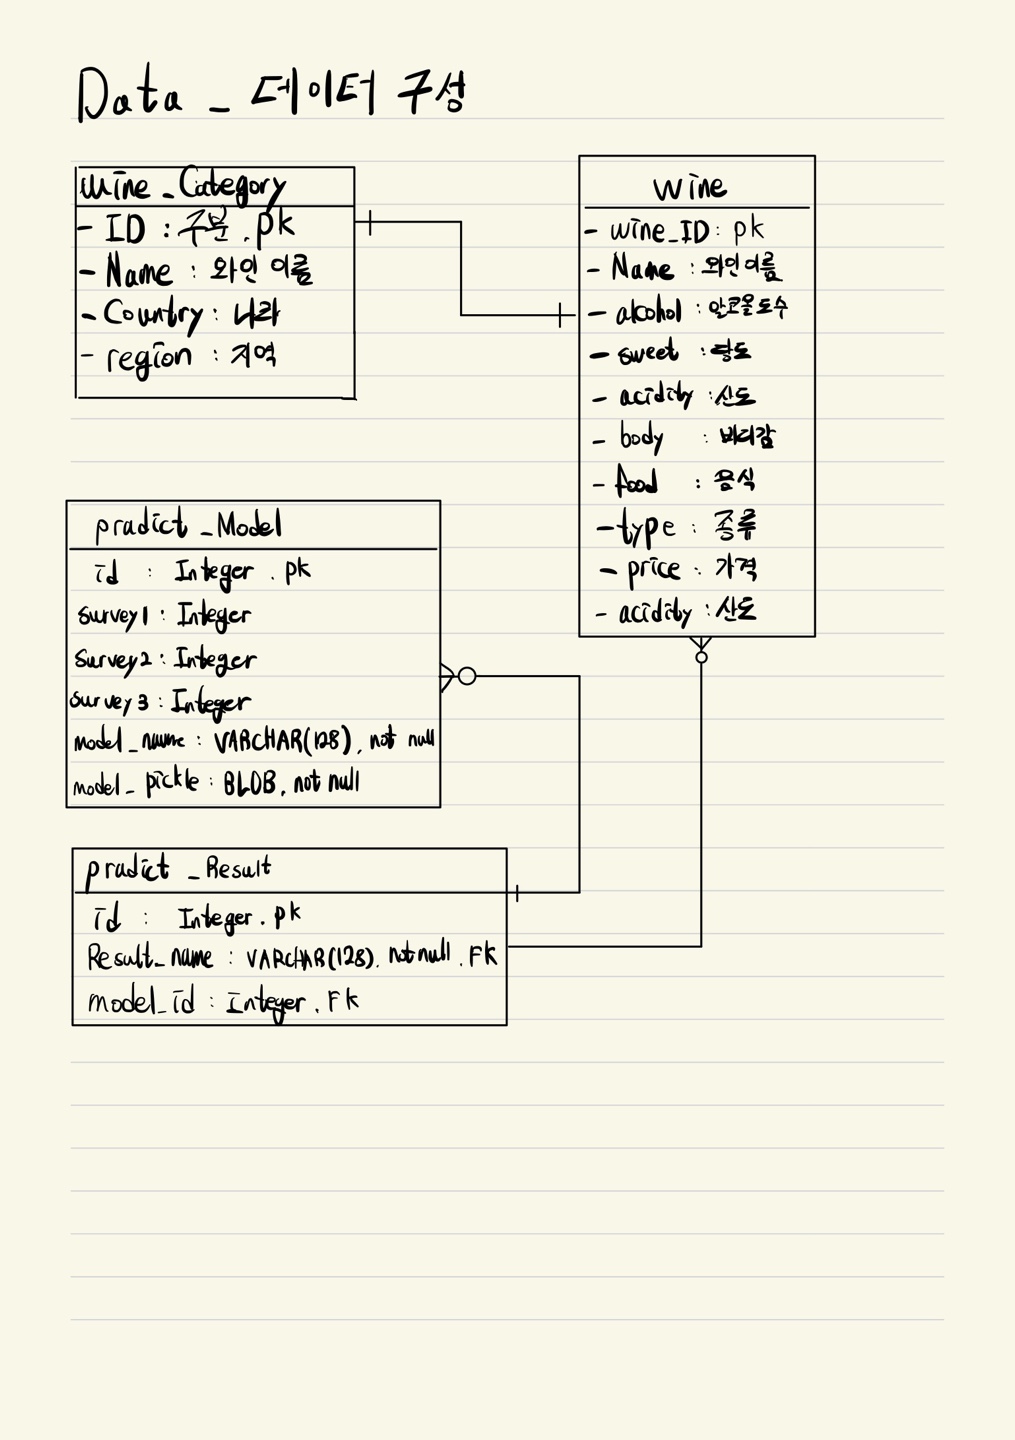 Data _ 데이터 구성
wine_Category
- ID : 주문. pk
- Name : 와인 이름
- Country : 나라
- region : 지역
wine
- wine_ID : pk
- Name : 와인이름
- alcohol : 알코올도수
- sweet : 당도
- acidity : 산도
- body : 바디감
- food : 음식
- type : 종류
- price : 가격
- acidity : 산도
pradict _Model
id : Integer . pk
survey1 : Integer
survey2 : Integer
survey3 : Integer
model_name : VARCHAR(128), not null
model_pickle : BLOB, not null
pradict _Result
id : Integer. pk
Result_name : VARCHAR(128). not null . FK
model_id : Integer . FK